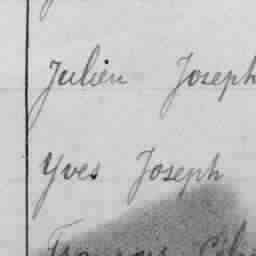 Julien Joseph
Yves Joseph
François